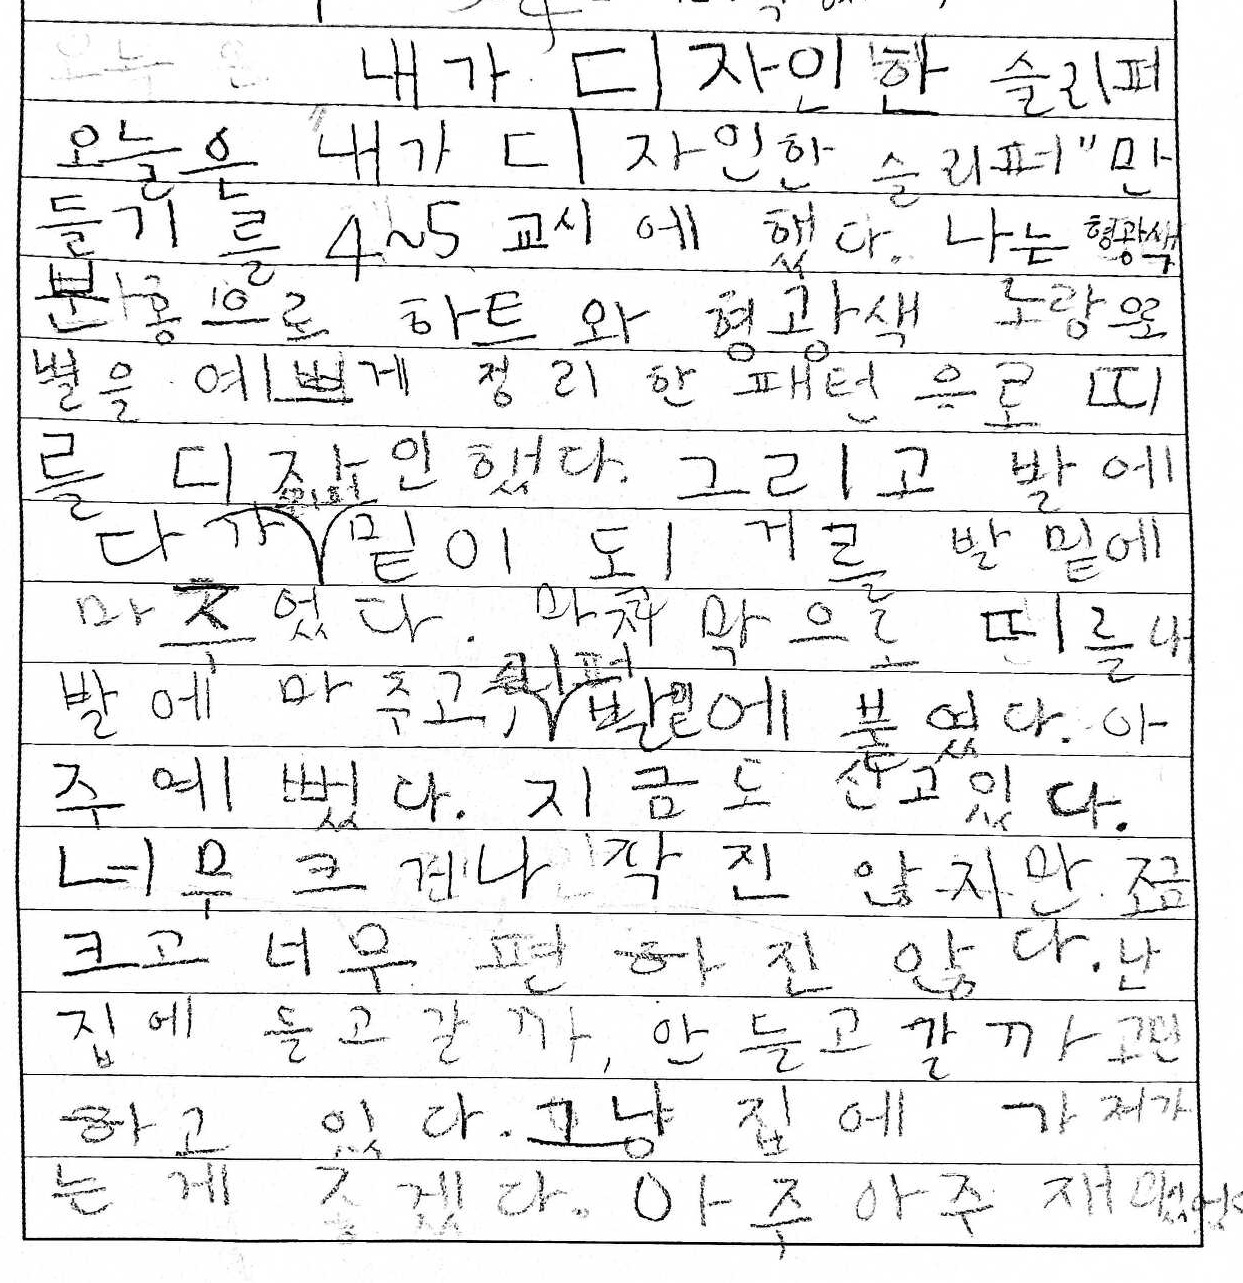 내가 디자인한 슬리퍼
오늘은 "내가 디자인한 슬리퍼" 만
들기를 4~5교시에 했다. 나는 형광색
분홍으로 하트와 형광색 노랑으로
별을 예쁘게 정리한 패턴으로 띠
를 디자인했다. 그리고 발에
다가 밑이 되거를 발 밑에
마추었다. 마지막으로 띠를 내
발에 마추고, 슬리퍼 밑에 붙였다. 아
주 예뻤다. 지금도 신고있다.
너무 크게나 작진 않지만 조금
크고 너무 편하진 않다. 난
집에 들고갈까, 안 들고갈까 고민
하고 있다. 그냥 집에 가져가
는게 좋겠다. 아주아주 재밌었